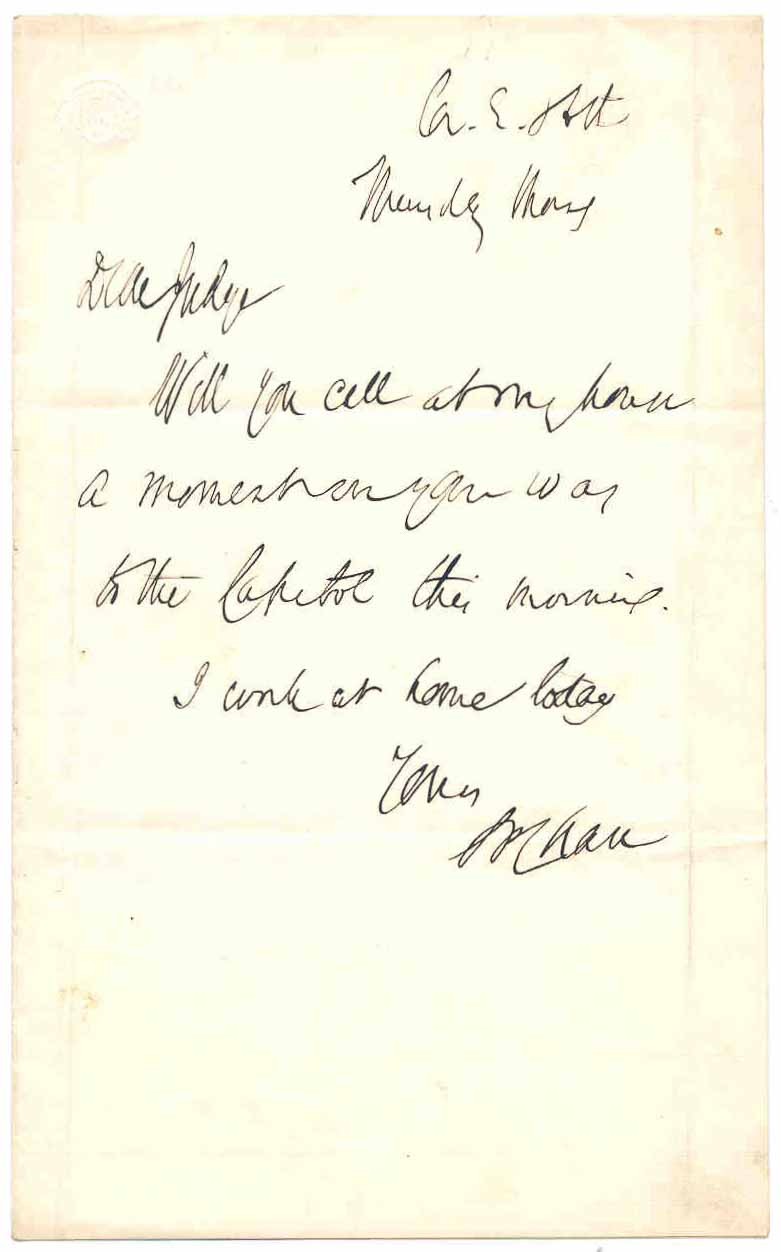 Cor. E. & 6th
Thursday Morng
Dear Judge
Will you call at my house
a moment on your way
to the Capitol this morning.
I work at home today
Yours
SPChase